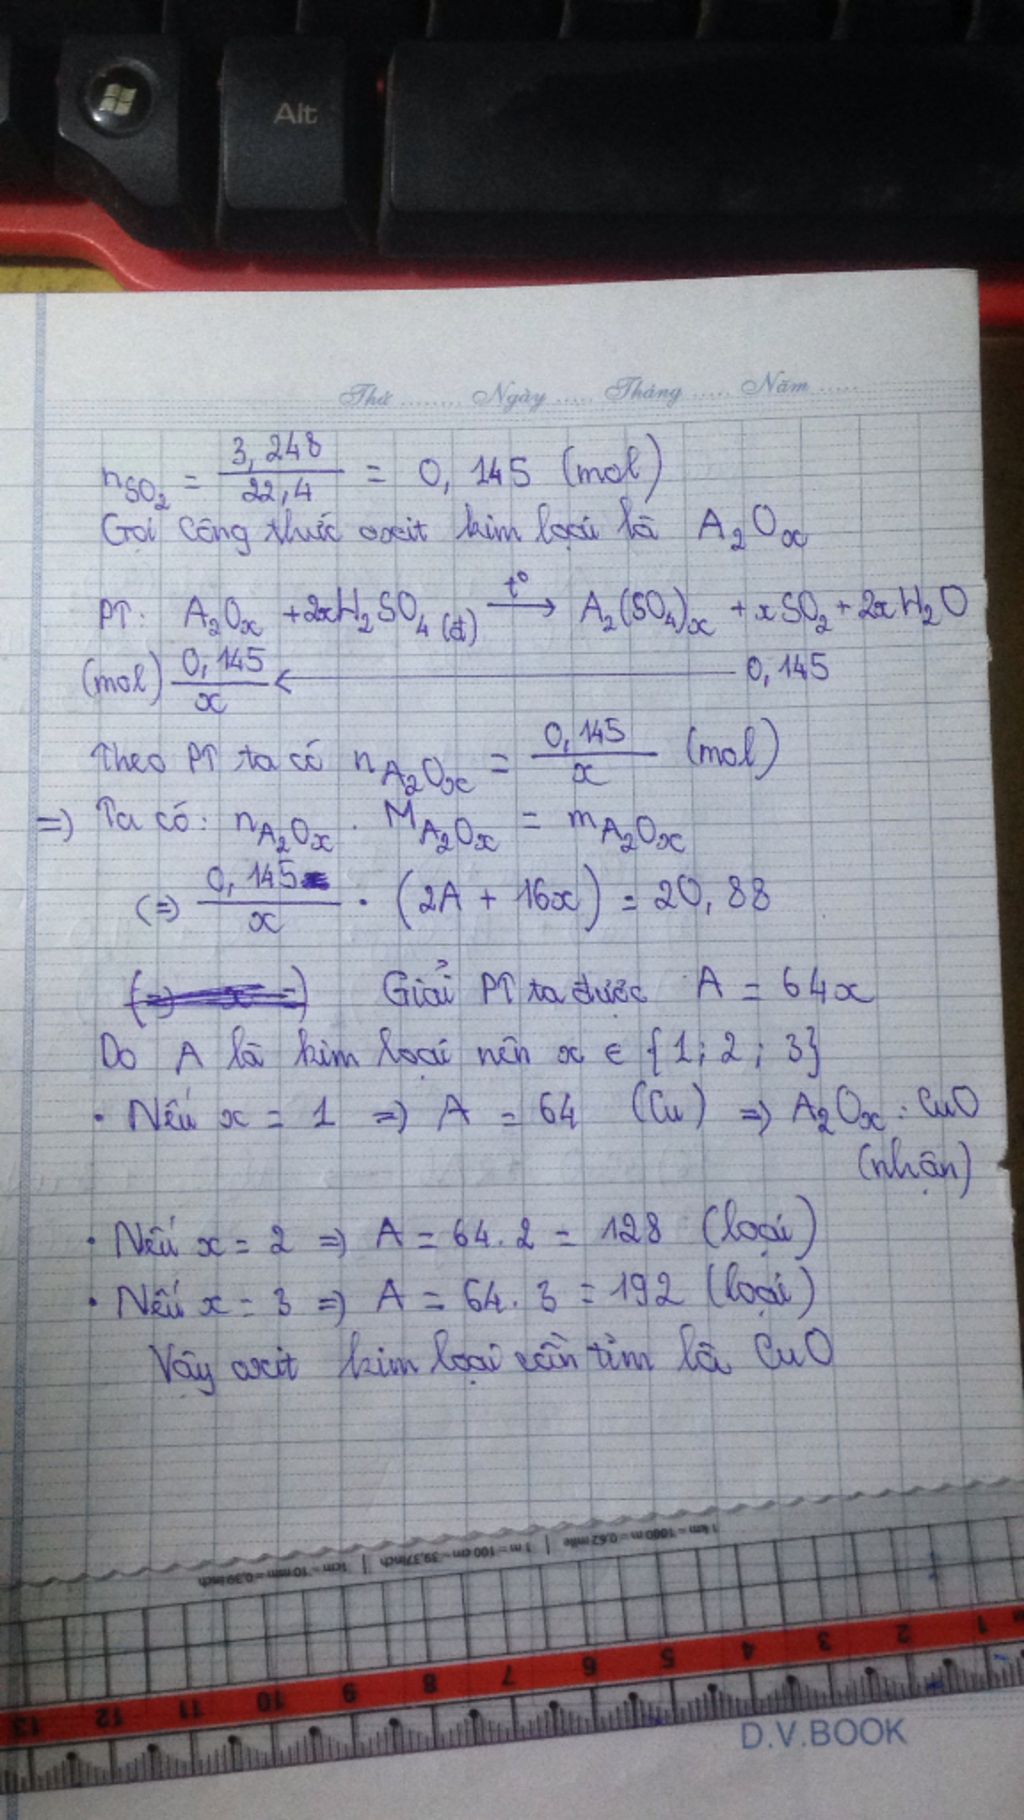 Alt
Thứ ........ Ngày ..... Tháng ..... Năm .....
nSO₂ = 3,248/22,4 = 0,145 (mol)
Gọi công thức oxit kim loại là A₂Oₓ
PT: A₂Oₓ + 2xH₂SO₄(đ) —t°→ A₂(SO₄)ₓ + xSO₂ + 2xH₂O
(mol) 0,145/x ← 0,145
Theo PT ta có nA₂Oₓ = 0,145/x (mol)
=) Ta có: nA₂Oₓ . MA₂Oₓ = mA₂Oₓ
(=) 0,145/x . (2A + 16x) = 20,88
Giải PT ta được A = 64x
Do A là kim loại nên x ∈ {1; 2; 3}
• Nếu x = 1 =) A = 64 (Cu) =) A₂Oₓ : CuO
(nhận)
• Nếu x = 2 =) A = 64.2 = 128 (loại)
• Nếu x = 3 =) A = 64.3 = 192 (loại)
Vậy oxit kim loại cần tìm là CuO
1 km = 1000 m = 0.62 mile | 1 m = 100 cm = 39.37 inch | 1cm = 10 mm = 0.39 inch
13 12 11 10 9 8 7 6 5 4 3 2 1
D.V.BOOK